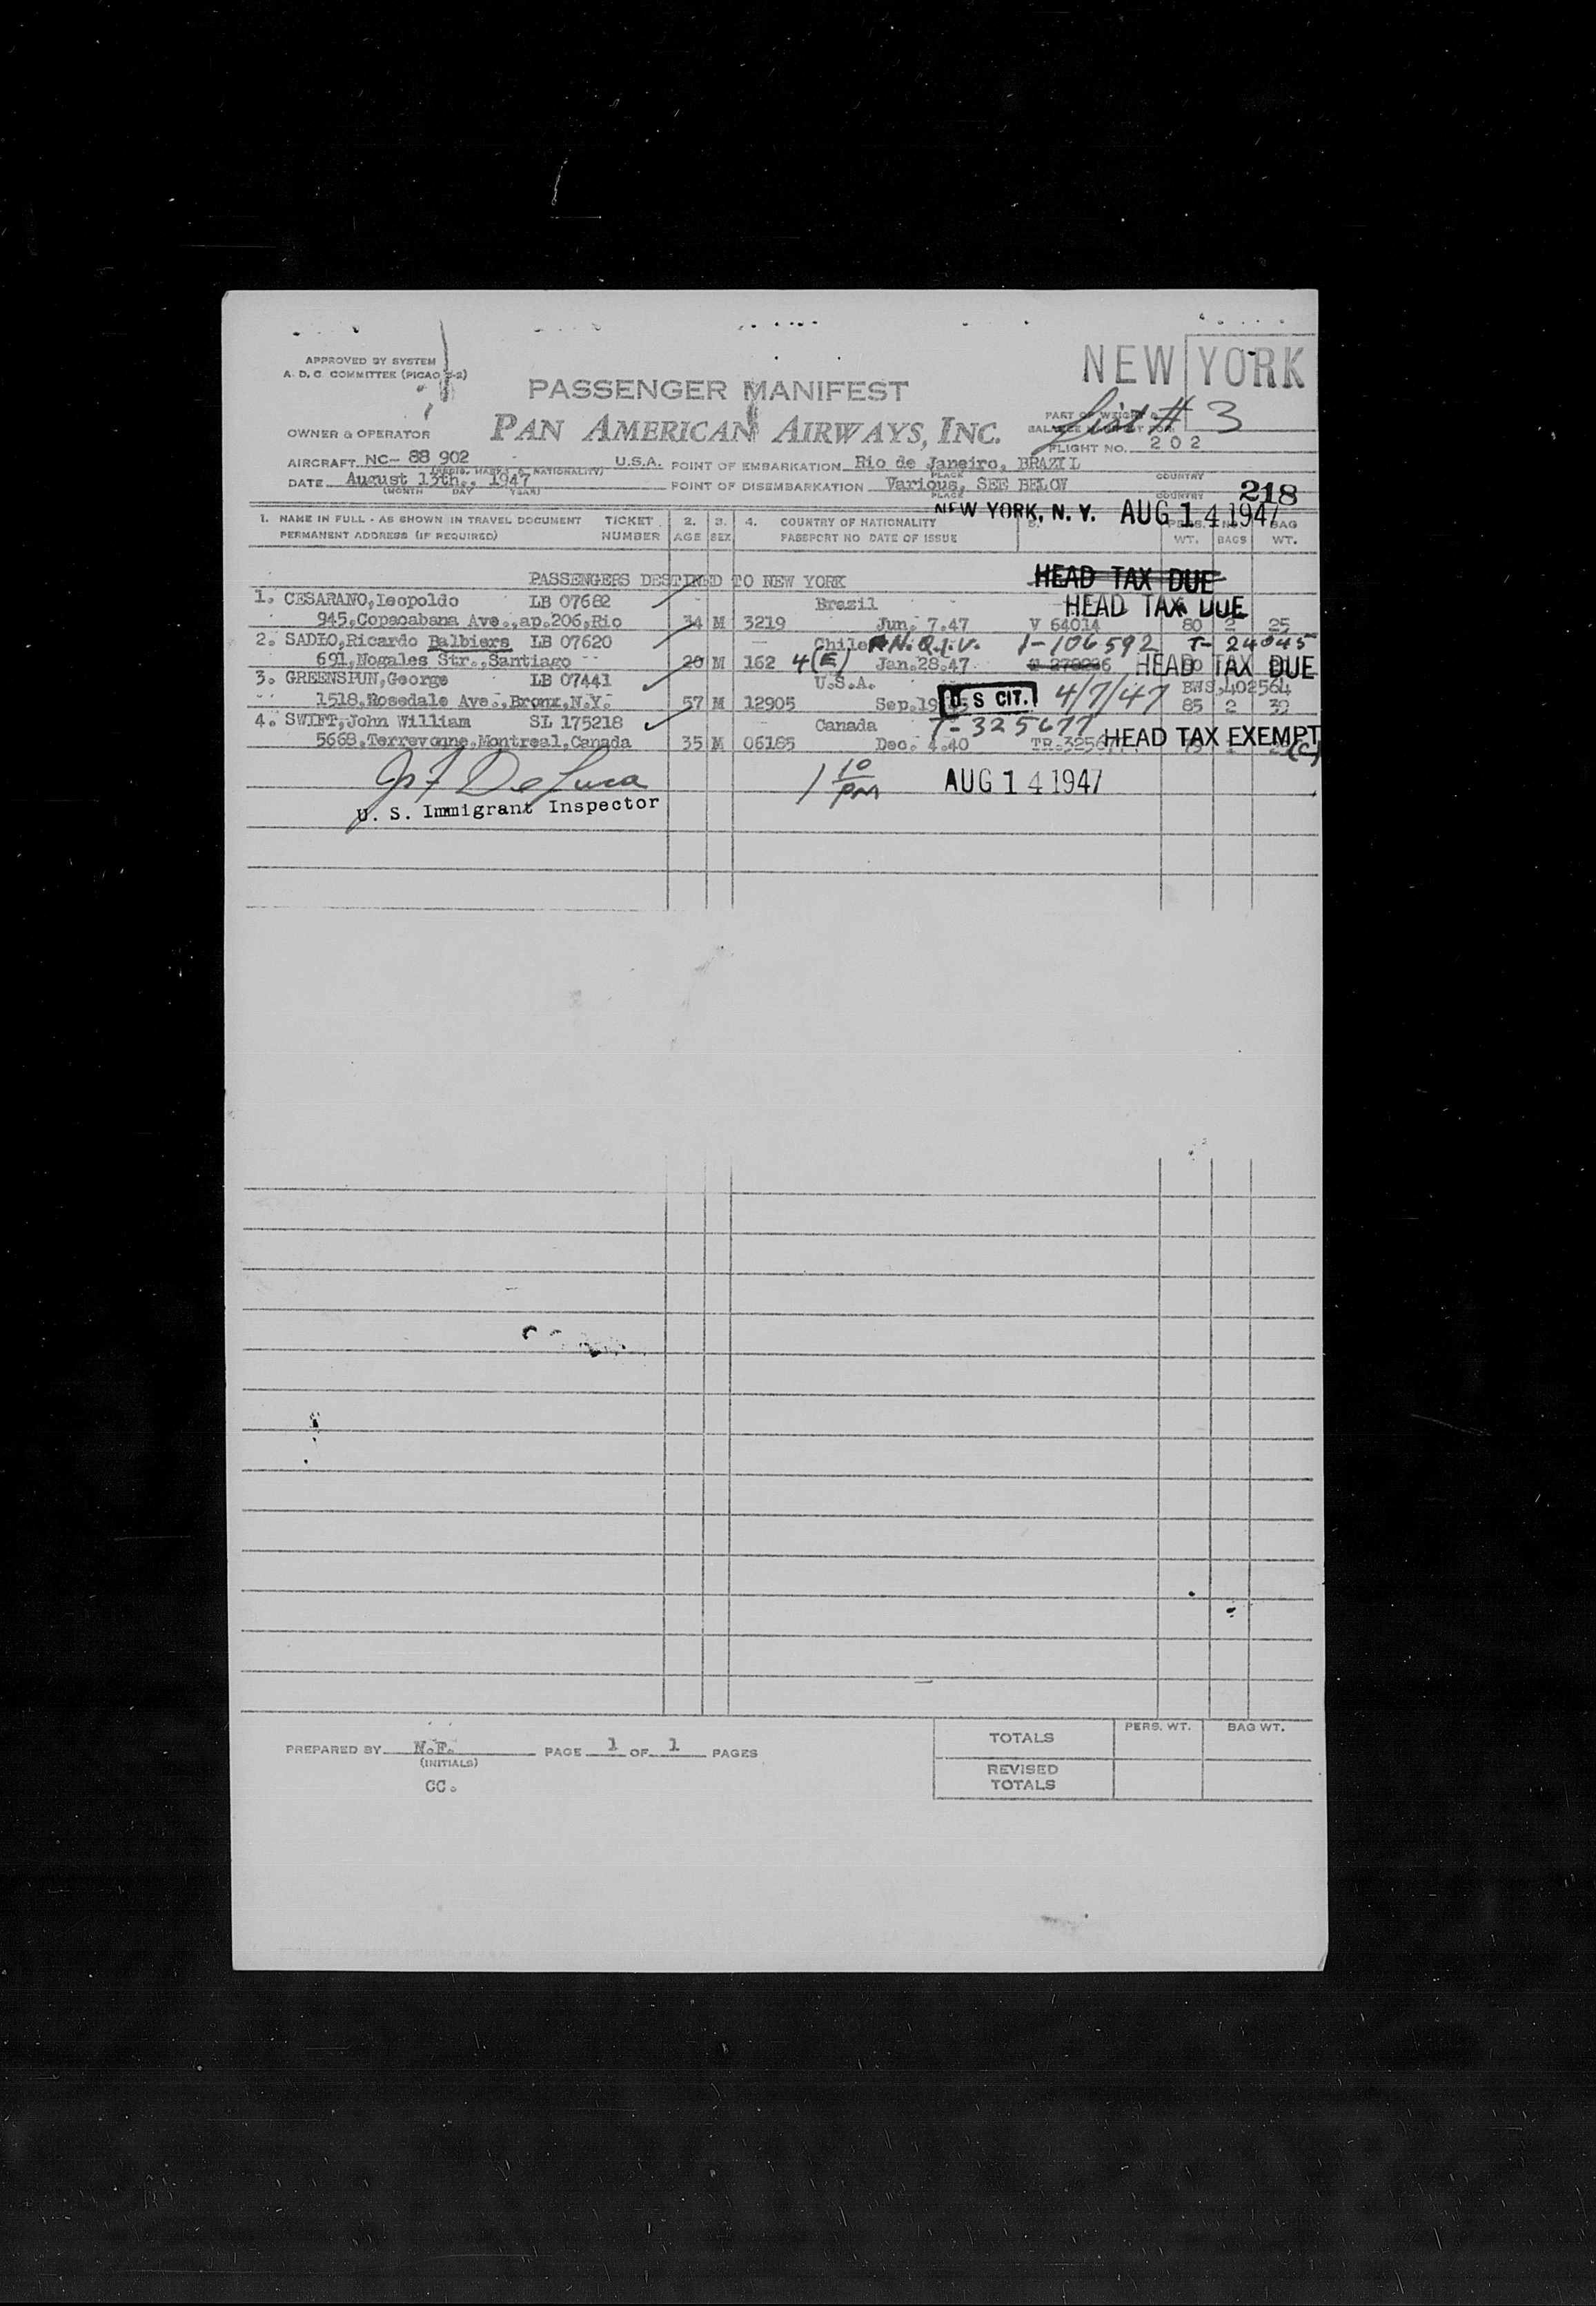 APPROVED BY SYSTEM
A. D. C. COMMITTEE (PICAO
NEW YORK
PASSENGER MANIFEST
List # 3
PART OF WEIGHT &
OWNER & OPERATOR PAN AMERICAN AIRWAYS, INC.
FLIGHT NO. 202
AIRCRAFT NC- 88 902 U.S.A. POINT OF EMBARKATION Rio de Janeiro, BRAZIL
(REGIS. MARKS & NATIONALITY) PLACE COUNTRY
DATE August 13th., 1947 POINT OF DISEMBARKATION Various, SEE BELOW
(MONTH DAY YEAR) PLACE COUNTRY
218
NEW YORK, N. Y. AUG 14 1947
1. NAME IN FULL - AS SHOWN IN TRAVEL DOCUMENT TICKET 2. 3. 4. COUNTRY OF NATIONALITY PERS. NO. BAG
PERMANENT ADDRESS (IF REQUIRED) NUMBER AGE SEX PASSPORT NO DATE OF ISSUE WT. BAGS WT.
PASSENGERS DESTINED TO NEW YORK HEAD TAX DUE
1. CESARANO,Leopoldo LB 07682 Brazil HEAD TAX DUE
945,Copacabana Ave.,ap.206,Rio 34 M 3219 Jun. 7.47 V 64014 80 2 25
2. SADLO,Ricardo Balbiers LB 07620 Chile N.Q.I.V. 1-106592 T- 24045
691,Nogales Str.,Santiago 20 M 162 4(E) Jan.28.47 HEAD TAX DUE
3. GREENSPUN,George LB 07441 U.S.A. U.S CIT. 4/7/47 BWS.402564
1518,Rosedale Ave.,Bronx,N.Y. 57 M 12905 Sep.19 85 2 39
4. SWIFT,John William SL 175218 Canada T-325677
5668,Terrevonne,Montreal,Canada 35 M 06185 Dec. 4.40 HEAD TAX EXEMPT (C)
De Luca
1 10 PM AUG 14 1947
U. S. Immigrant Inspector
TOTALS PERS. WT. BAG WT.
PREPARED BY N.F. PAGE 1 OF 1 PAGES
(INITIALS)
REVISED
TOTALS
CC.